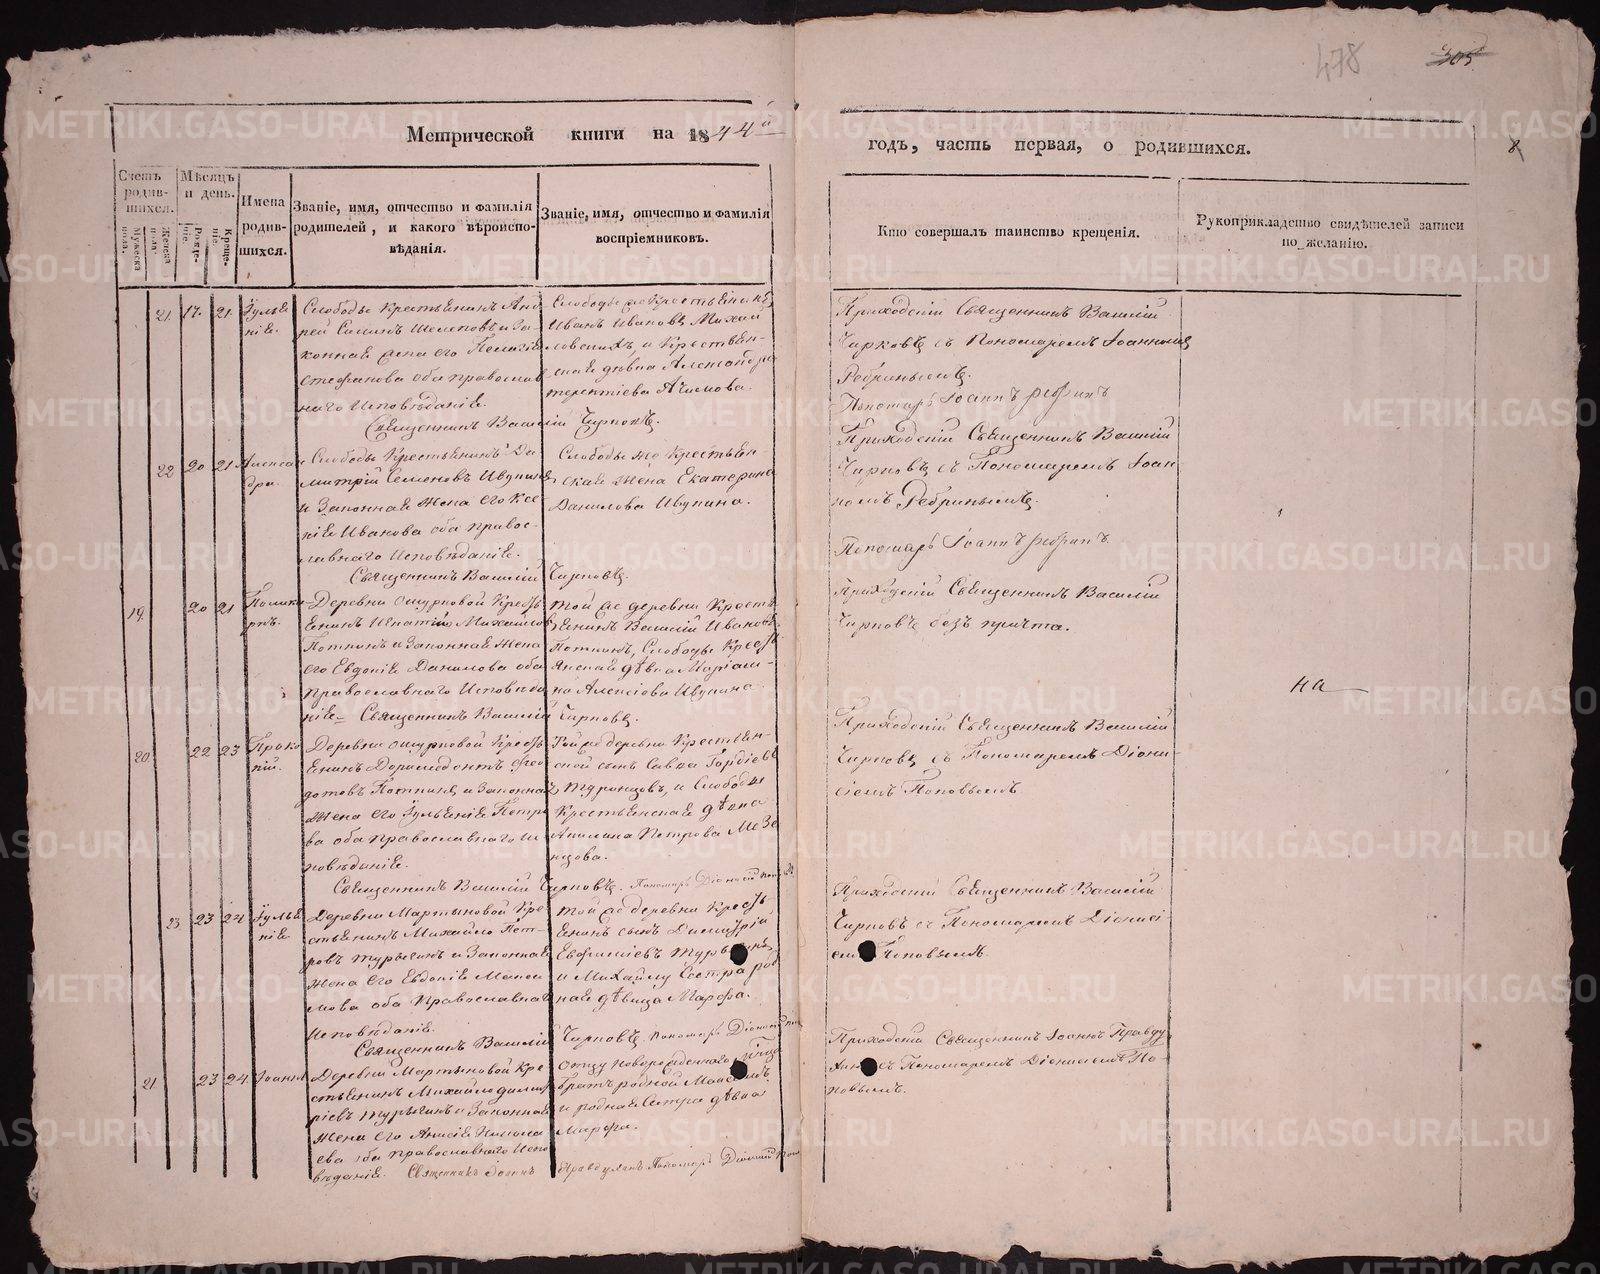 478
305
Метрической книги на 1844й
годъ, часть первая, о родившихся.
8
Счетъ родив-шихся.
Мужеска пола.
Женска пола.
Мѣсяцъ и день.
Рожде-нія.
Креще-нія.
Имена родив-шихся.
Званіе, имя, отчество и фамилія родителей, и какого вѣроиспо-вѣданія.
Званіе, имя, отчество и фамилія воспріемниковъ.
Кто совершалъ таинство крещенія.
Рукоприкладство свидѣтелей записи по желанію.
21. 17. 21. Іулья
нія.
Слободы Крестьянинъ Анд
рей
законная жена его Пелагія
Стефанова оба православ
наго Исповѣданія.
Слободы же Крестьянинъ
Иванъ Ивановъ Михай
ловскихъ и Крестьян-
ская дѣвка Александра
терентіева
Священникъ Василій Чирковъ.
Приходскій Священникъ Василій
Чирковъ съ Пономаремъ Іоанномъ
Ребринымъ.
Пономарь Іоаннъ Ребринъ
22 20 21 Алексан
дра.
Слободы Крестьянинъ Ди
митрій Семеновъ Ивукинъ
и Законная Жена его Ксе
нія Иванова оба правос-
лавнаго Исповѣданія.
Слободы же Крестьян
ская Жена Екатерина
Данилова Ивукина.
Священникъ Василій Чирковъ.
Приходскій Священникъ Василій
Чирковъ съ Пономаремъ Іоан
номъ Ребринымъ.
Пономарь Іоаннъ Ребринъ.
19. 20 21 Полика
рпъ.
Деревни Ошурковой Кресть
янинъ Игнатій Михайловъ
Поткинъ и Законная Жена
его Евдокія Данилова оба
Православнаго Исповѣда
нія= Священникъ Василій Чирковъ.
той же деревни Кресть
янинъ Василій Ивановъ
Поткинъ, Слободы Кресть
янская дѣвка Маріам-
на Алексіева Ивукина.
Приходскій Священникъ Василій
Чирковъ безъ причта.
на
20. 22 23 Проко
пій.
Деревни Ошурковой Кресть
янинъ Доримедонтъ Фео
дотовъ Поткинъ, и Законная
Жена его Іульянія Петро
ва оба православнаго и
повѣданія.
Той же деревни Крестьян-
ской сынъ Савва Гордіевъ
и Слободы
Крестьянская дѣвка
Акилина Петрова Мезе
нцова.
Священникъ Василій Чирковъ. Пономарь Діонисій
Приходскій Священникъ Василій
Чирковъ съ Пономаремъ Діони-
сіемъ Поповымъ
23 23 24 Іулья
нія.
Деревни Мартыновой Кре
стьянинъ Михайло Пет-
ровъ Турыгинъ и Законная
Жена его Евдокія Макси
мова оба Православнаго
Исповѣданія.
той же деревни Кресть
янинъ сынъ Димитрій
Евфиміевъ
и Михайлу Сестра род
ная дѣвица Марфа.
Священникъ Василій Чирковъ Пономарь Діонисій
Приходскій Священникъ Василій
Чирковъ съ Пономаремъ Діонисі
емъ Поповымъ.
21 23 24. Іоаннъ
Деревни Мартыновой Кре
стьянинъ Михайло Димит
ріевъ Турыгинъ и Законная
Жена его Анисія Никола
ева оба православнаго Испо
вѣданія.
отцу новорожденнаго
братъ родной Максимъ
и родная Сестра дѣвка
Марфа.
Священникъ Іоаннъ Правдухинъ Пономарь Діонисій
Приходскій Священникъ Іоаннъ Правду
хинъ съ Пономаремъ Діонисіемъ По-
повымъ.
METRIKI.GASO-URAL.RU